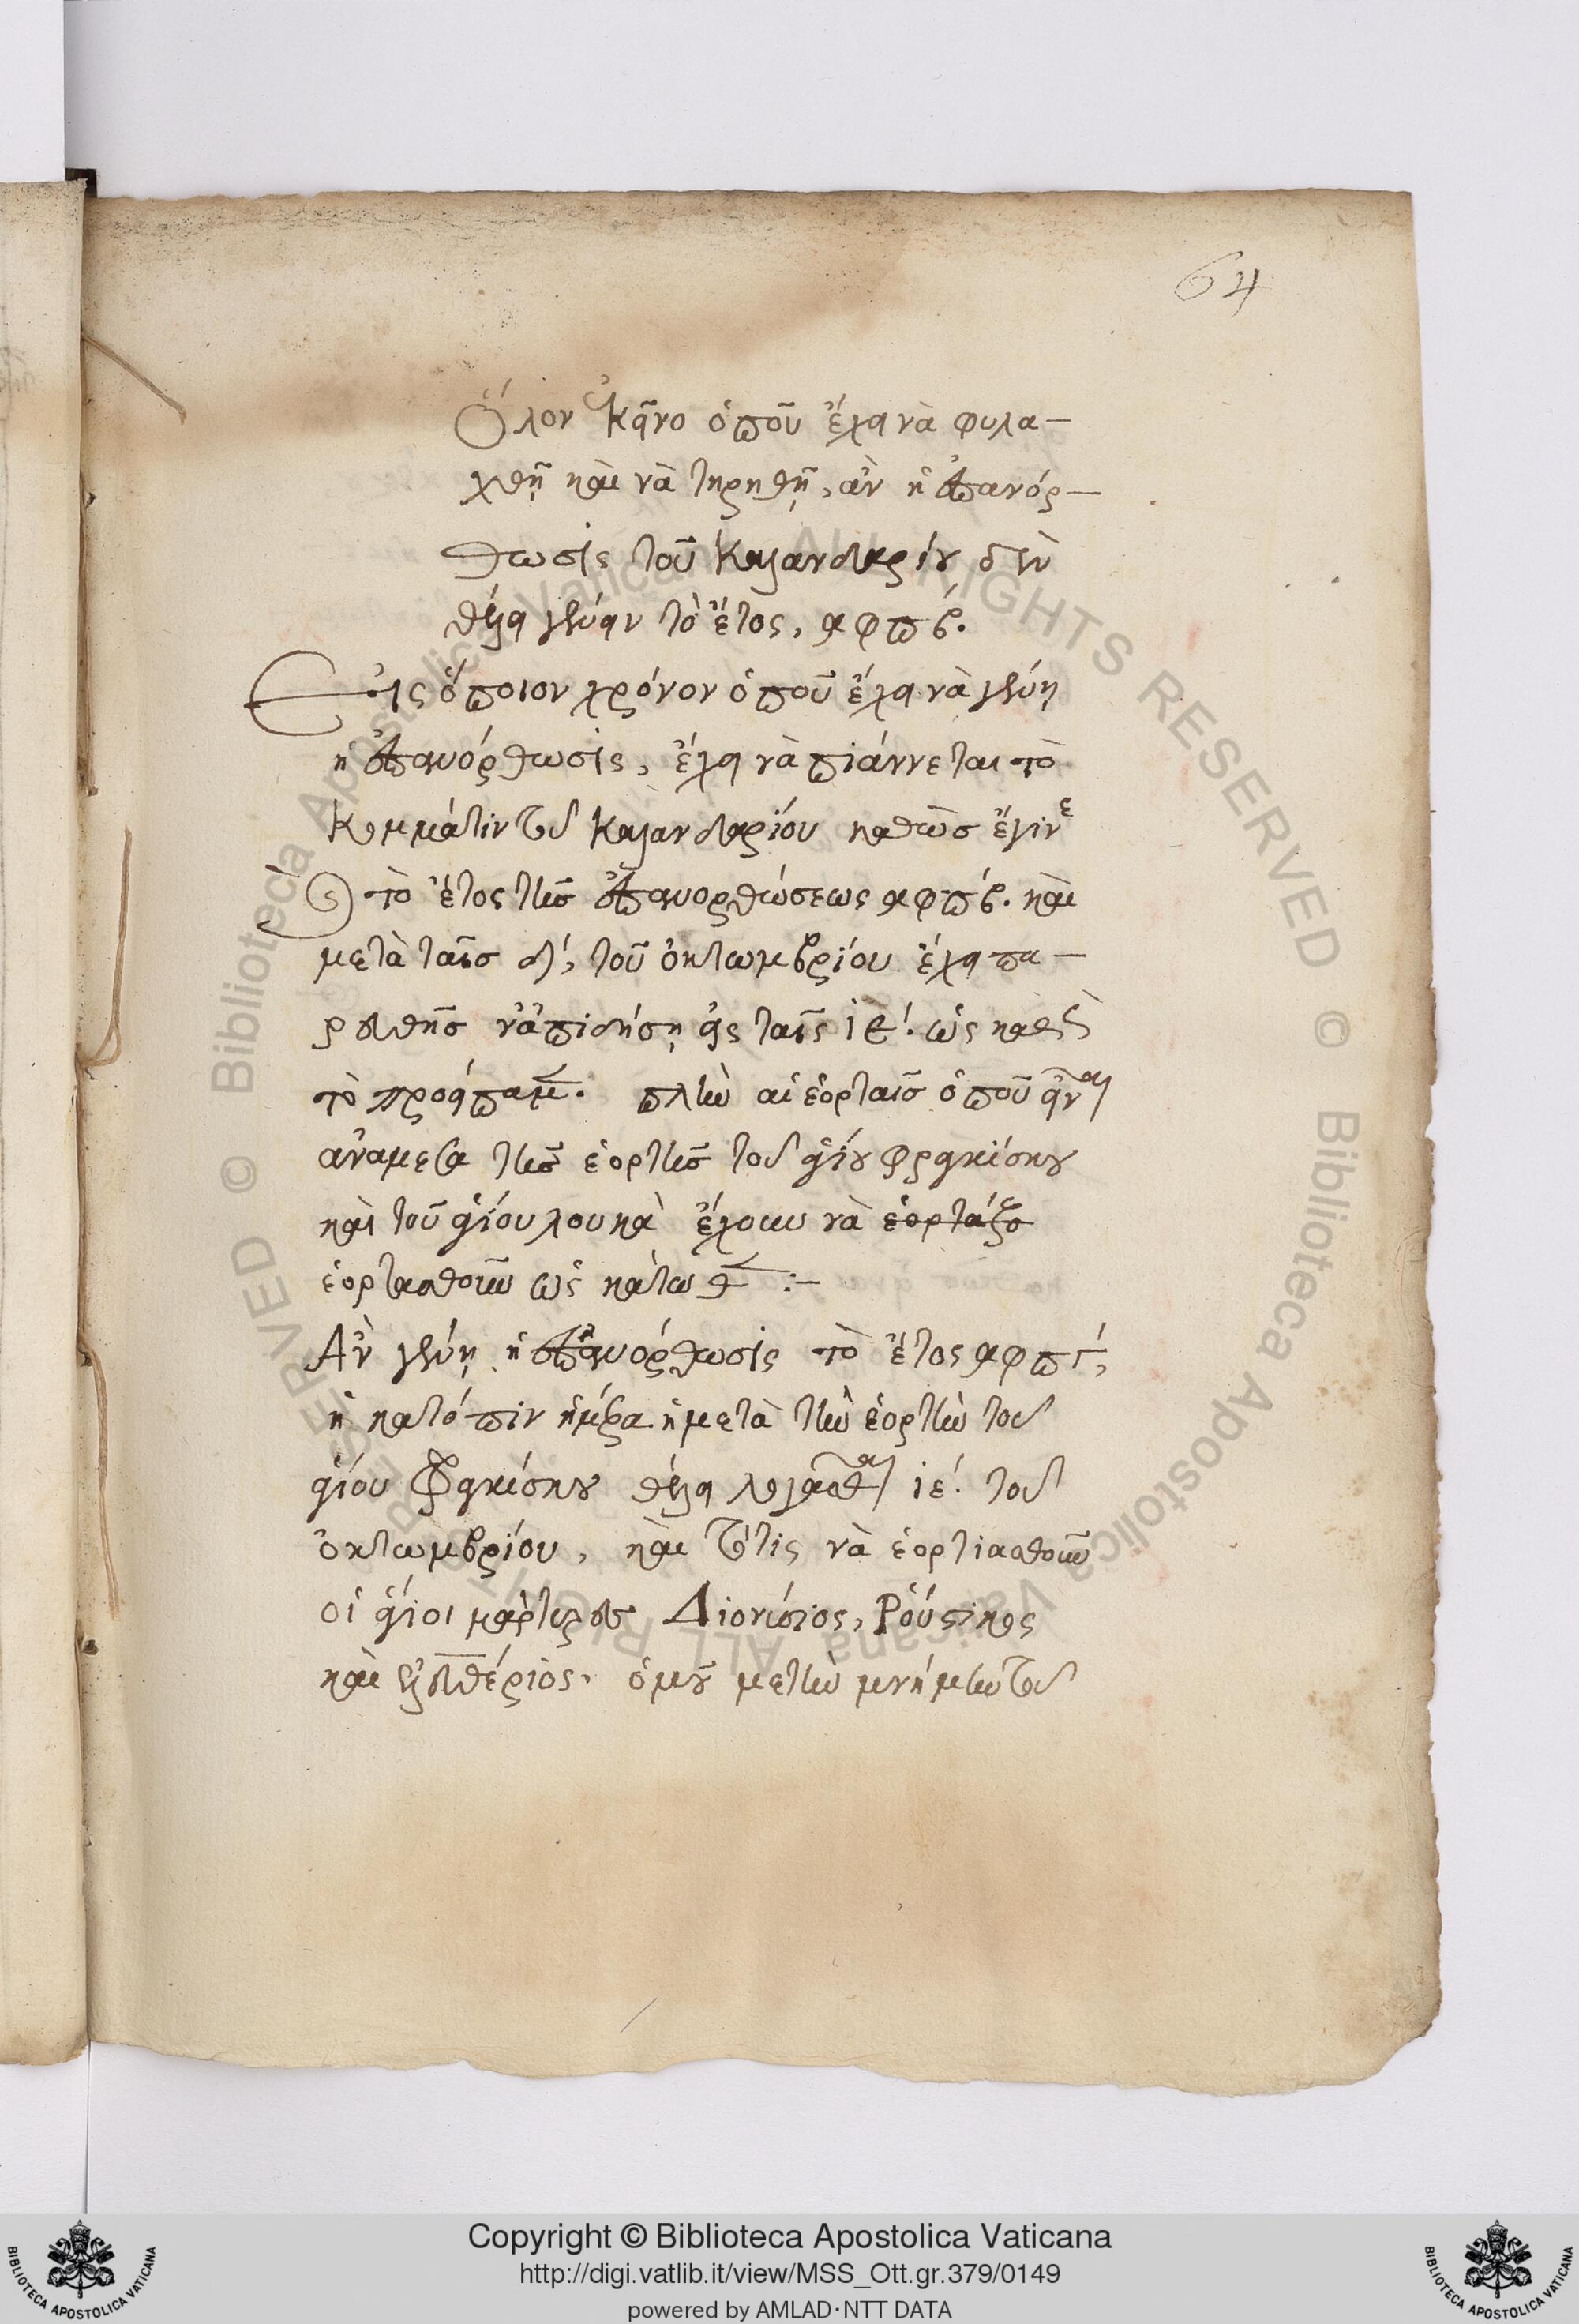 64
Ὅλον ἐκεῖνο ὁποῦ ἔχει νὰ φυλα-
χθῇ καὶ νὰ τηρηθῇ, ἂν ἡ ἐπανόρ-
θωσις τοῦ Καλανδαρίου δὲν
θέλει γένειν τὸ ἔτος, αφπβ.
Εἰς ὅποιον χρόνον ὁποῦ ἔχει νὰ γένῃ
ἡ ἐπανόρθωσις, ἔχει νὰ πιάννεται τὸ
Κομμάτιν τοῦ Καλανδαρίου καθὼς ἔγινε
εἰς τὸ ἔτος τῆς ἐπανορθώσεως αφπβ. καὶ
μετὰ ταῖς δ', τοῦ ὀκτωμβρίου ἔχει πα-
ρευθὴς νὰ πιδήσῃ εἰς ταῖς ιε'. ὡς καθὼς
τὸ προείπαμεν. πλὴν αἱ ἑορταῖς ὁποῦ εἶναι
ἀνάμεσα τῆς ἑορτῆς τοῦ ἁγίου φραγκίσκου
καὶ τοῦ ἁγίου λουκᾶ ἔχουν νὰ ἑορτάζο
ἑορτασθοῦν ὡς κάτωθεν :-
Ἂν γένῃ ἡ ἐπανόρθωσις τὸ ἔτος αφπγ',
ἡ κατόπιν ἡμέρα ἡ μετὰ τὴν ἑορτὴν τοῦ
ἁγίου Φραγκίσκου θέλει λογᾶσθαι ιε'. τοῦ
ὀκτωμβρίου, καὶ τότις νὰ ἑορτιασθοῦν
οἱ ἅγιοι μάρτυρες Διονύσιος, Ῥούστικος
καὶ ἐλευθέριος. ὁμοῦ με τὴν μνήμην τοῦ
Copyright © Biblioteca Apostolica Vaticana
http://digi.vatlib.it/view/MSS_Ott.gr.379/0149
powered by AMLAD·NTT DATA